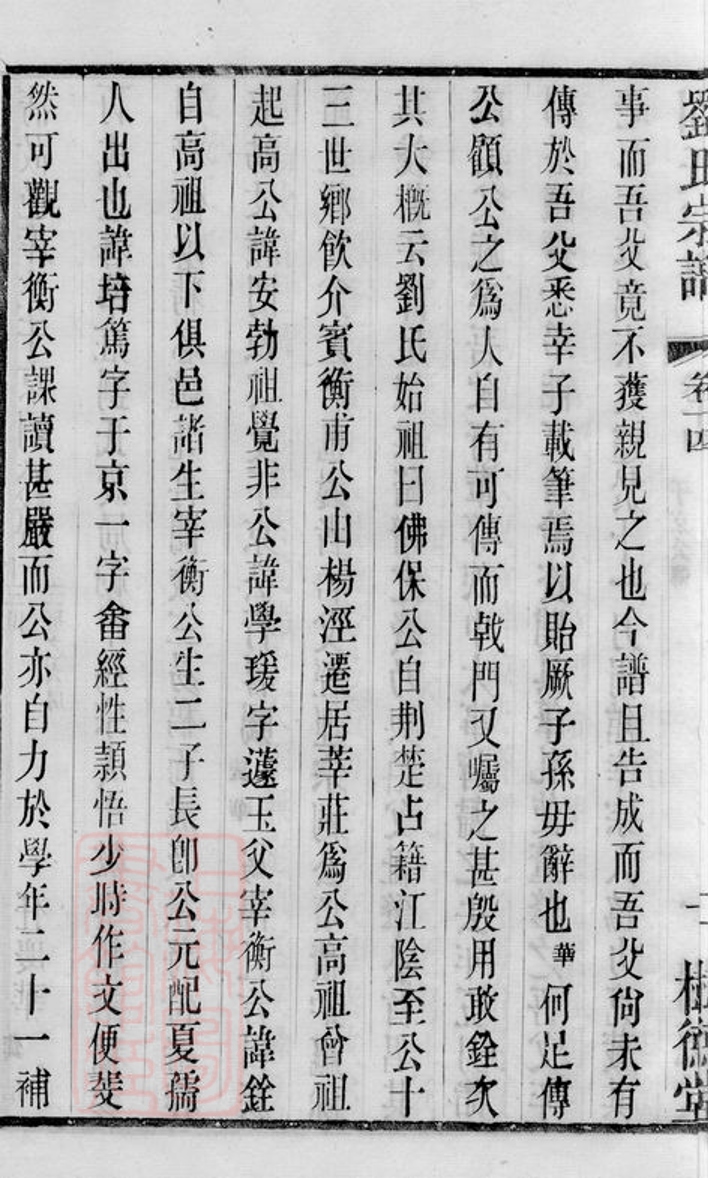 劉氏宗譜 卷十四
事而吾父竟不獲親見之也今譜且告成而吾父尙未有
傳於吾父悉幸子載筆焉以貽厥子孫毋辭也華何足傳
公顧公之爲人自有可傳而戟門又囑之甚殷用敢銓次
其大槪云劉氏始祖曰佛保公自荆楚占籍江陰至公十
三世鄉飮介賓衡甫公由楊涇遷居莘莊爲公高祖曾祖
起高公諱安勃祖覺非公諱學瑗字蘧玉父宰衡公諱銓
自高祖以下俱邑諸生宰衡公生二子長卽公元配夏孺
人出也諱培篤字于京一字畬經性穎悟少時作文便斐
然可觀宰衡公課讀甚嚴而公亦自力於學年二十一補